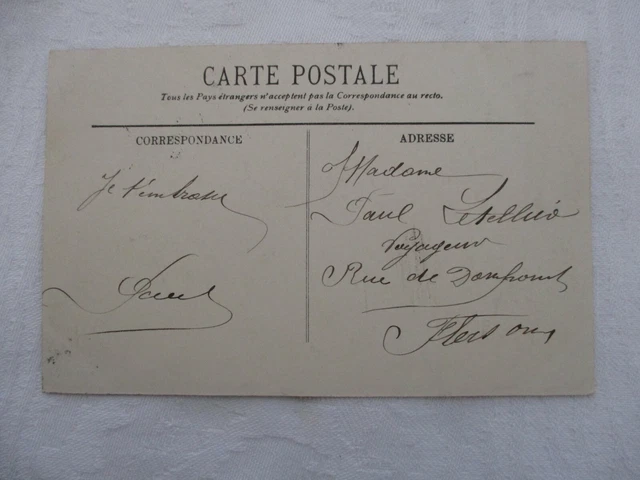 CARTE POSTALE
Tous les Pays étrangers n'acceptent pas la Correspondance au recto.
(Se renseigner à la Poste).
CORRESPONDANCE
Je t'embrasse
Paul
ADRESSE
Madame
Paul Letellier
Voyageur
Rue de Domfront
Flers Orne